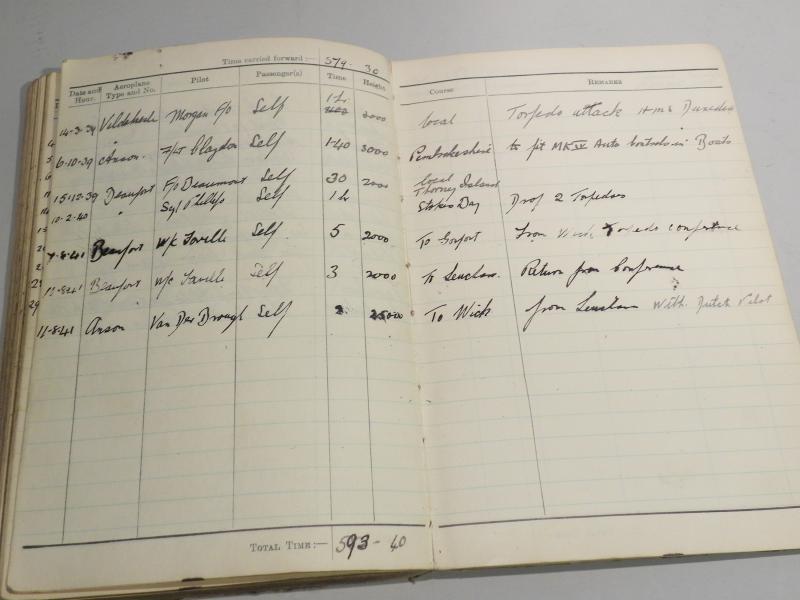 Time carried forward :— 579 - 30
Date and Hour. Aeroplane Type and No. Pilot Passenger(s) Time Height Course Remarks
14-3-39 Morgan F/o Self 1 hr 2000 local Torpedo attack H.M.S Dunedin
6-10-39 Anson. F/Lt Claydon Self 1-40 3000 Pembrokeshire to fit MK IV Auto controls in Boats
15-12-39 Beaufort F/o Beaumont Self 30 2000 local Thorney Island
10-2-40 " Sgt Phillips Self 1 hr Stokes Bay Drop 2 Torpedoes
7-8-41 Beaufort W/c Self 5 2000 To Gosport from Wick Torpedo conference
Beaufort W/c Self 3 2000 To Leuchars. Return from Conference
11-8-41 Anson Van Der Self 2. To Wick from Leuchars With Dutch Pilot
Total Time :— 593 - 40